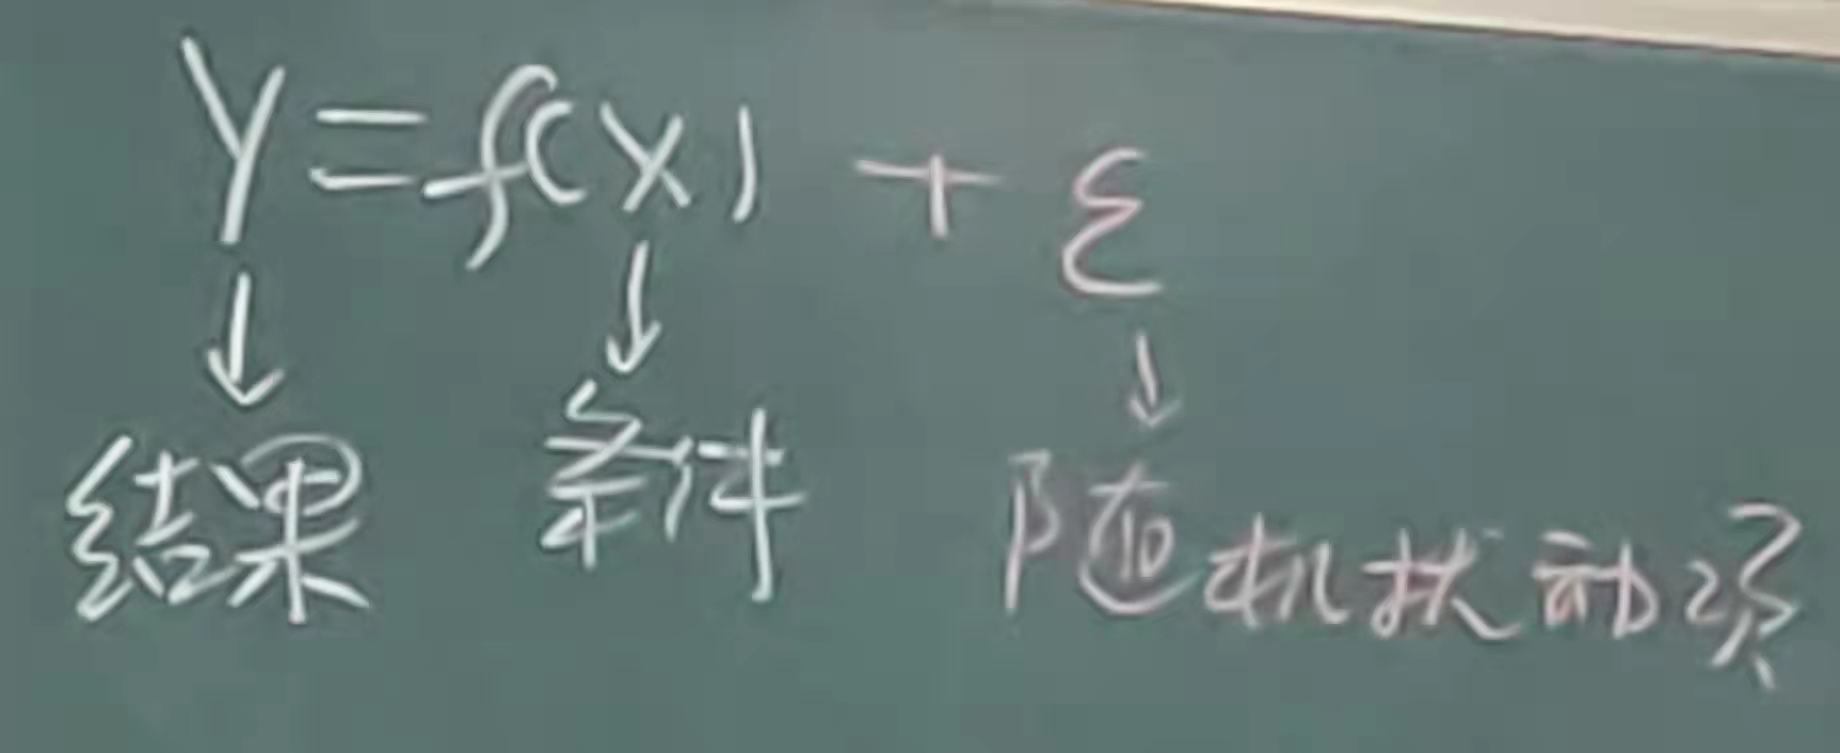 Y=f(x) + ε
↓ ↓ ↓
结果 条件 随机扰动项